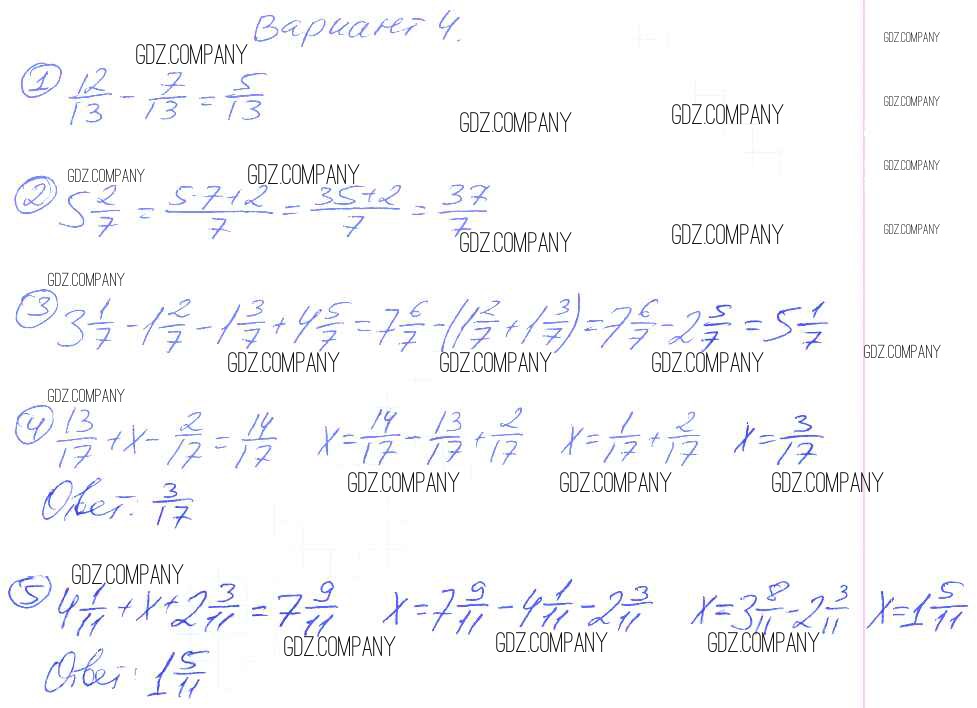 Вариант 4.
GDZ.COMPANY
GDZ.COMPANY
① 12/13 - 7/13 = 5/13
GDZ.COMPANY
GDZ.COMPANY
GDZ.COMPANY
GDZ.COMPANY
GDZ.COMPANY
GDZ.COMPANY
② 5 2/7 = (5·7+2)/7 = (35+2)/7 = 37/7
GDZ.COMPANY
GDZ.COMPANY
GDZ.COMPANY
GDZ.COMPANY
③ 3 1/7 - 1 2/7 - 1 3/7 + 4 5/7 = 7 6/7 - (1 2/7 + 1 3/7) = 7 6/7 - 2 5/7 = 5 1/7
GDZ.COMPANY
GDZ.COMPANY
GDZ.COMPANY
GDZ.COMPANY
GDZ.COMPANY
④ 13/17 + x - 2/17 = 14/17 x = 14/17 - 13/17 + 2/17 x = 1/17 + 2/17 x = 3/17
GDZ.COMPANY
GDZ.COMPANY
GDZ.COMPANY
Ответ: 3/17
GDZ.COMPANY
⑤ 4 1/11 + x + 2 3/11 = 7 9/11 x = 7 9/11 - 4 1/11 - 2 3/11 x = 3 8/11 - 2 3/11 x = 1 5/11
GDZ.COMPANY
GDZ.COMPANY
GDZ.COMPANY
Ответ: 1 5/11